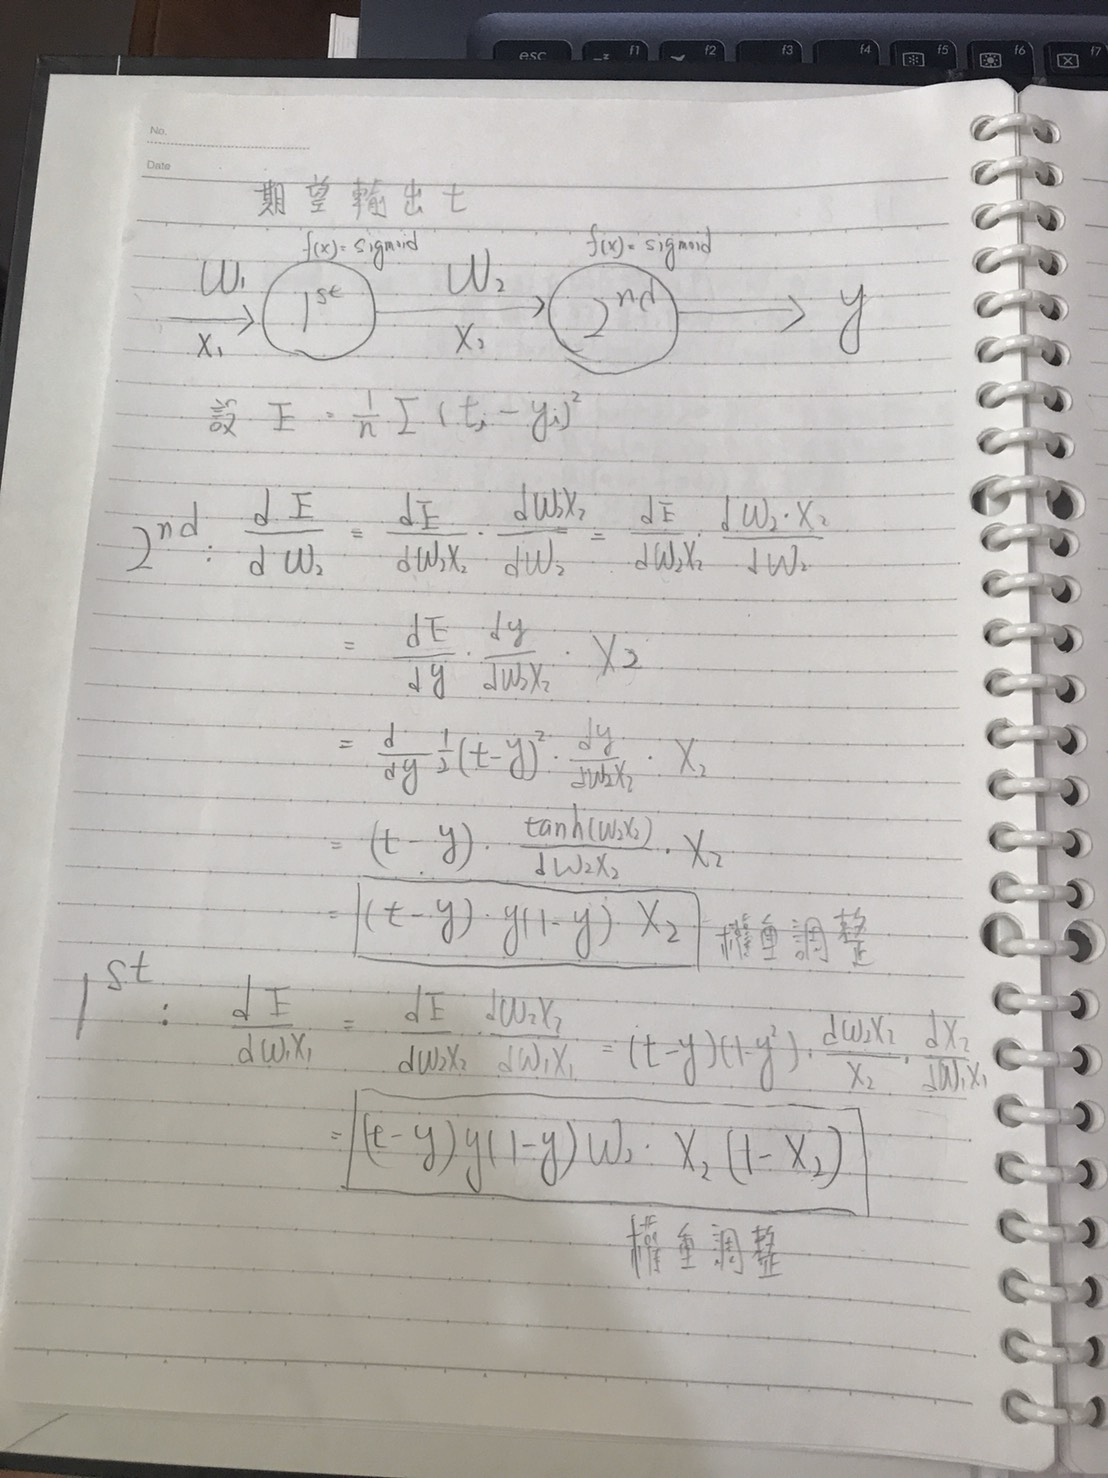 esc f1 f2 f3 f4 f5 f6 f7
No.
Date
期望輸出t
f(x)= sigmoid f(x)= sigmoid
W₁ 1st W₂ 2nd y
X₁ X₂
設 E = 1/n Σ (tᵢ - yᵢ)²
2nd: dE/dW₂ = dE/dW₂X₂ · dW₂X₂/dW₂ = dE/dW₂X₂ · dW₂·X₂/dW₂
= dE/dy · dy/dW₂X₂ · X₂
= d/dy 1/2 (t-y)² · dy/dW₂X₂ · X₂
= (t-y) · tanh(W₂X₂)/dW₂X₂ · X₂
= (t-y) · y(1-y) X₂ 權重調整
1st: dE/dW₁X₁ = dE/dW₂X₂ · dW₂X₂/dW₁X₁ = (t-y)(1-y²) · dW₂X₂/X₂ · dX₂/dW₁X₁
= (t-y)y(1-y)W₂ · X₂(1-X₂)
權重調整